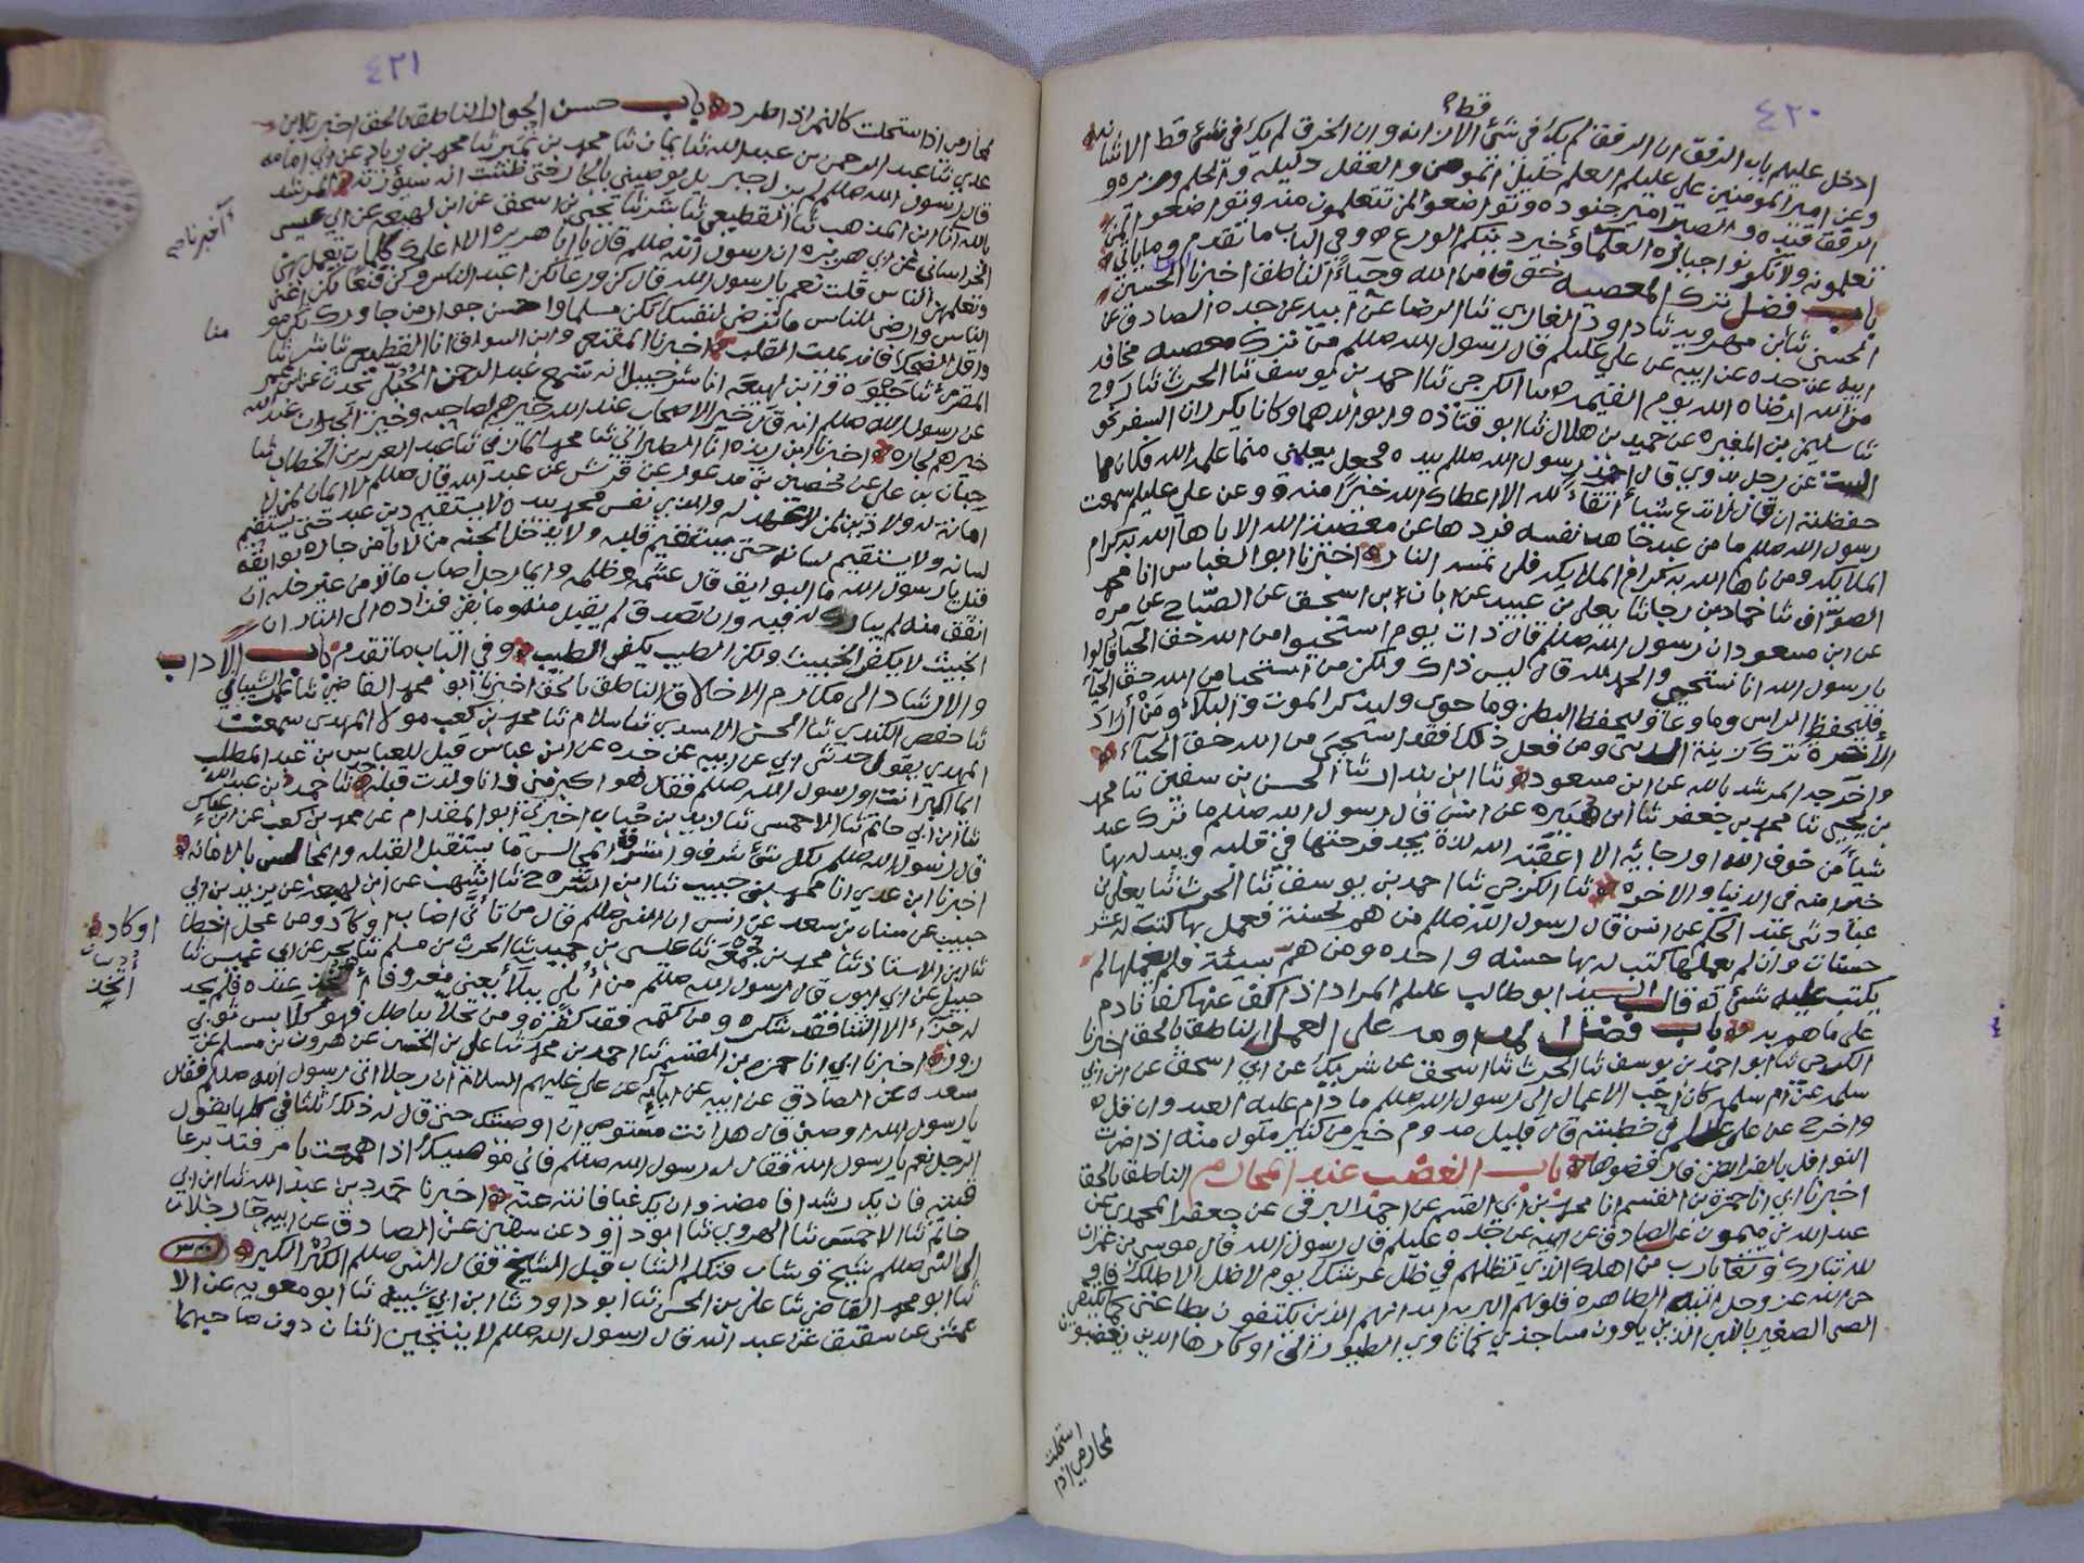 ٤٢٠
قط؟
ادخل عليهم باب الرفق ان الرفق لم يك في شئ الا زانه وان الخرق لم يك في شئ قط الا شانه
وعن امير المومنين علي عليلم العلم خليل المومن والعقل دليله والحلم وزيره و
الرفق والصبر امير جنوده وتواضعوا لمن تتعلمون منه وتواضعوا لمن
تعلمونه ولا تكونوا جبابرة العلما وخير دينكم الورع وفي الباب ما تقدم وما ياتي
باب فضل ترك المعصية خوفا من الله وحياءً الناطق اخبرنا الحسين
الحسني ثنا ابن مهرويه ثنا داود الغازي ثنا الرضا عن ابيه عن جده الصادق عن
ابيه عن جده عن ابيه عن علي عليلم قال رسول الله صللم من ترك معصيه مخافه
من الله ارضاه الله يوم القيمه الكرجي ثنا احمد بن يوسف ثنا الحرث ثنا روح
ثنا سليمن بن المغيره عن حميد بن هلال ثنا ابو قتاده وابو الدهما وكانا يكرران السفر نحو
البيت عن رجل بدوي قال اخذ رسول الله صللم بيده فجعل يعلمني مما علمه الله فكان مما
حفظته ان قال لا تدع شيأ اتقاءً لله الا اعطاك الله خيرًا منه وعن علي عليلم سمعت
رسول الله صللم ما من عبد جاهد نفسه فردها عن معصية الله الا باها الله به كرام
الملايكه ومن باها الله به كرام الملايكه فلن تمسه النار اخبرنا ابو العباس انا محمد
الصواف ثنا حماد بن رجا ثنا يعلى بن عبيد عن ابان ابن اسحق عن الصباح عن مره
عن ابن مسعود ان رسول الله صللم قال ذات يوم استحيوا من الله حق الحيا قالوا
يا رسول الله انا نستحيي والحمد لله قال ليس ذاك ولكن من استحيا من الله حق الحيا
فليحفظ الراس وما وعا وليحفظ البطن وما حوى وليذكر الموت والبلاء ومن أراد
الأخرة ترك زينة الدنيا ومن فعل ذلك فقد استحيى من الله حق الحياء
واخرجه المرشد بالله عن ابن مسعود ثنا ابن بندار ثنا الحسن بن سفين ثنا محمد
بن يحيى ثنا محمد بن جعفر ثنا ابن عن انس قال رسول الله صللم ما ترك عبد
شيأ من خوف الله او رجايه الا اعقبه الله لذة يجد فرحتها في قلبه ويبدله بها
خيرا منه في الدنيا والاخره ثنا الكرجي ثنا احمد بن يوسف ثنا الحرث ثنا يعلى بن
عباد ثنى عبد الحكم عن انس قال رسول الله صللم من هم بحسنة فعمل بها كتب له عشر
حسنات وان لم يعملها كتب له بها حسنه واحده ومن هم بسيئة فلم يعملها لم
يكتب عليه شئ قال السيد ابو طالب عليلم المراد اذا كف عنها كفا نادم
على ما هم به باب فضل المداومه على العمل الناطق بالحق اخبرنا
الكرجي ثنا ابو احمد بن يوسف ثنا الحرث ثنا اسحق عن شريك عن ابي اسحق عن ابن ابي
سلمه عن أم سلمه كان احب الاعمال الى رسول الله صللم ما دام عليه العبد وان قل
واخرج عن علي عليلم في خطبته قال قليل مدوم خير من كثير مملول منه اذا اضرت
النوافل بالفرايض فارفضوها باب الغضب عند المحارم الناطق بالحق
اخبرنا ابي انا حمزة بن القسم انا محمد بن ابي القسم عن احمد البرقي عن جعفر المحمدي عن
عبد الله بن ميمون عن الصادق عن ابيه عن جده عليلم قال رسول الله قال موسى بن عمران
لله تبارك وتعا يارب من اهلك الذي تظلهم في ظل عرشك يوم لا ظل الا ظلك فاو
حى الله عز وجل اليه الطاهره قلوبهم البريه ايديهم الذين يكتفون بطاعتي كما يكتفي
الصبي الصغير باللبن الذين ياوون مساجدي كما تاوي الطيور الى اوكارها الذين يغضبون
لمحارمي اذا
استحلت
٤٢١
لمحارمي اذا استحلت كالنمر اذا طرد باب حسن الجوار الناطق بالحق اخبرنا ابن
عدي ثنا عبد الرحمن بن عبد الله ثنا يمان ثنا محمد بن حمير ثنا محمد بن زياد عن ابي امامه
قال رسول الله صللم لم يزل جبريل يوصيني بالجار حتى ظننت انه سيورثه المرشد
بالله انا ابن المذهب ثنا القطيعي ثنا بشر ثنا يحيى بن اسحق عن ابن لهيعه عن ابي عيسى
الخراساني عن ابي هريره ان رسول الله صللم قال يا ابا هريره الا اعلمك كلمات تعمل بهن
وتعلمهن الناس قلت نعم يا رسول الله قال كن ورعا تكن اعبد الناس وكن قنعا تكن اغنى
الناس وارض للناس ما ترضى لنفسك تكن مسلما واحسن جوار من جاورك تكن مو
منا
واقل الضحك فانه يميت القلب اخبرنا المقنعي وابن السواق انا القطيعي ثنا بشر ثنا
المقرئ ثنا حيوه وابن لهيعه انا شرحبيل انه سمع عبد الرحمن الحبلي يحدث عن ابن عمر
عن رسول الله صللم انه قال خير الاصحاب عند الله خيرهم لصاحبه وخير الجيران عند الله
خيرهم لجاره اخبرنا ابن ريذه انا الطبراني ثنا محمد المازني ثنا عبد العزيز بن الخطاب ثنا
حبان بن علي عن حصين بن مذعور عن قرش عن عبد الله قال صللم لا ايمان لمن لا
امانة له ولا دين لمن لا عهد له والذي نفس محمد بيده لا يستقيم دين عبد حتى يستقيم
لسانه ولا يستقيم لسانه حتى يستقيم قلبه ولا يدخل الجنه من لا يامن جاره بوايقه
قيل يا رسول الله ما البوايق قال غشمه وظلمه وايما رجل اصاب مالا من غير حله ان
انفق منه لم يبارك له فيه وان تصدق لم يقبل منه وما بقي فزاده الى النار ان
الخبيث لا يكفر الخبيث ولكن الطيب يكفر الطيب وفي الباب ما تقدم باب الاداب
والارشاد الى مكارم الاخلاق الناطق بالحق اخبرنا ابو محمد القاضي ثنا عمر الشيباني
ثنا حفص الكندي ثنا الحسن الاسدي ثنا سلام ثنا محمد بن كعب مولا المهدي سمعت
المهدي يقول حدثني ابي عن ابيه عن جده عن ابن عباس قيل للعباس بن عبد المطلب
ايما اكبر انت او رسول الله صللم فقال هو اكبر مني وانا ولدت قبله ثنا حمد بن عبد الله
ثنا ابن ابي حاتم ثنا الاحمسي ثنا زيد بن حباب اخبرني ابو المقدام عن محمد بن كعب عن ابن عباس
قال رسول الله صللم لكل شئ شرف واشرف المجالس ما يستقبل القبله وانما المجالس بالامانه
اخبرنا ابن عدي انا محمد بن حبيب ثنا ابن السرح ثنا اشهب عن ابن لهيعه عن يزيد بن ابي
حبيب عن سنان بن سعد عن انس ان النبي صللم قال من تأنى اصاب او كاد ومن عجل اخطا
او كاد
ثنا ابن الاستاذ ثنا محمد بن جمعه ثنا عيسى بن حميد ثنا الحرث بن مسلم ثنا بحر عن ابي غميس ثنا
جبيل عن ابي ايوب قال رسول الله صللم من أُبلي بلاًء يعني معروفا أتخذ عنده فلم يجد
أتخذ
له جزاءًا الا الثنا فقد شكره ومن كتمه فقد كفره ومن تحلا بباطل فهو كلابس ثوبي
زور اخبرنا ابي انا حمزه بن القسم ثنا احمد بن محمد ثنا علي بن الحسين عن هرون بن مسلم عن
سعده عن الصادق عن ابيه عن آبائه عن علي عليهم السلام ان رجلا اتى رسول الله صللم فقال
يا رسول الله اوصني قال هل انت مستوص ان اوصيتك حتى قال له ذلك ثلثا في كلها يقول
الرجل نعم يا رسول الله فقال له رسول الله صللم فاني موصيك اذا هممت بامر فتدبر عا
قبته فان يك رشدا فامضه وان يك غيا فانته عنه اخبرنا حمد بن عبد الله ثنا ابن ابي
حاتم ثنا الاحمسي ثنا الهروي ثنا ابو داود عن سفين عن الصادق عن ابيه جا رجلان
الى النبي صللم شيخ وشاب فتكلم الشاب قبل الشيخ فقال النبي صللم الكُبر الكبر
ثنا ابو محمد القاضي ثنا علي بن الحسن ثنا ابو داود ثنا ابن ابي شيبه ثنا ابو معويه عن الا
عمش عن شقيق عن عبد الله قال رسول الله صللم لا ينتجين اثنان دون صاحبهما